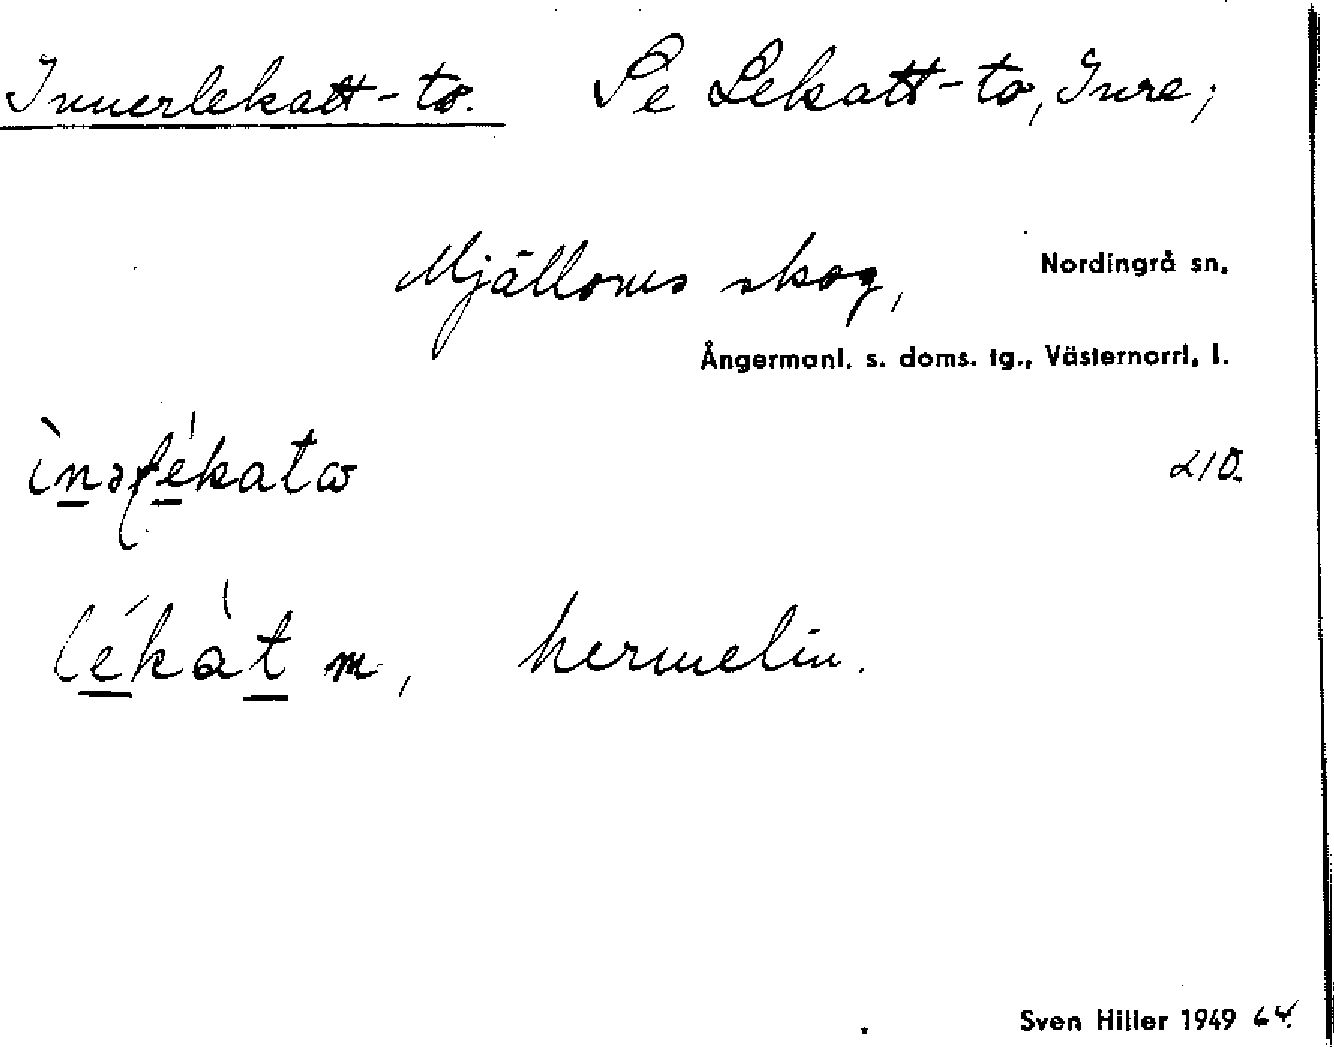 Innerlekatt-tö. Se Lekatt-tö, Inre,
Mjälloms skog, Nordingrå sn,
Ångermanl. s. doms. tg., Västernorrl. l.
210.
lékàt m, hermelin.
Sven Hiller 1949 64.